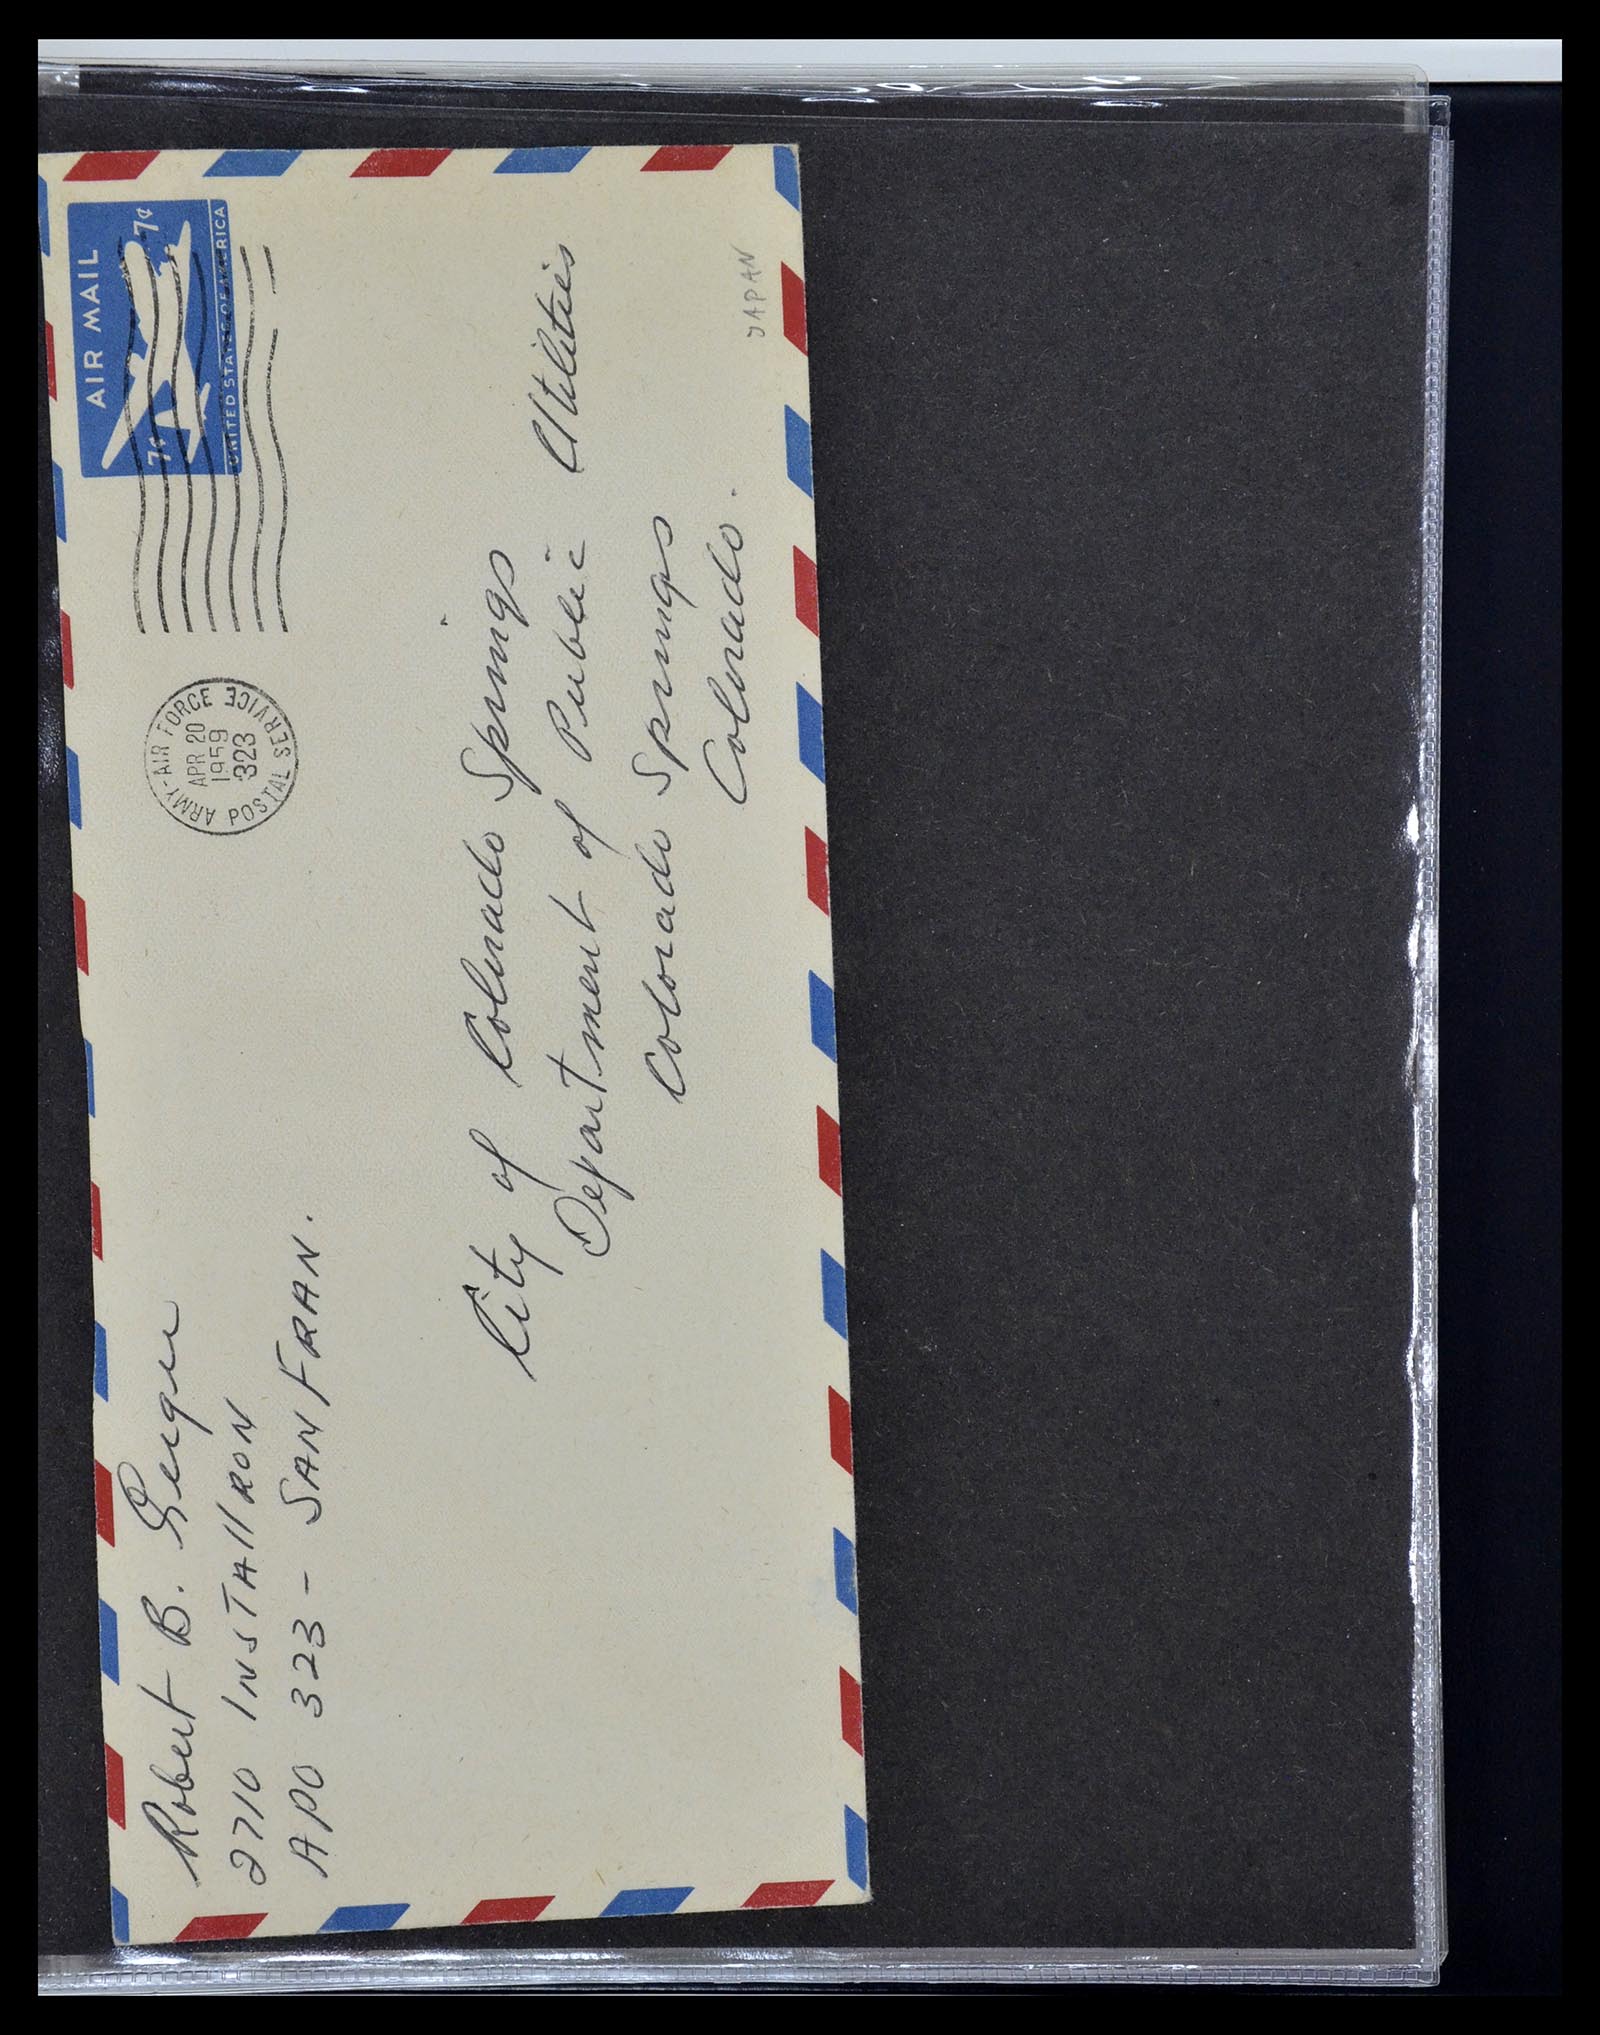 Robert B.
2710 INSTAllRON
APO 323 - SAN FRAN.
ARMY-AIR FORCE POSTAL SERVICE
APR 20
1959
323
AIR MAIL
7¢ 7¢
UNITED STATES OF AMERICA
City of Colorado Springs
Department of Public Utilities
Colorado Springs
Colorado.
JAPAN